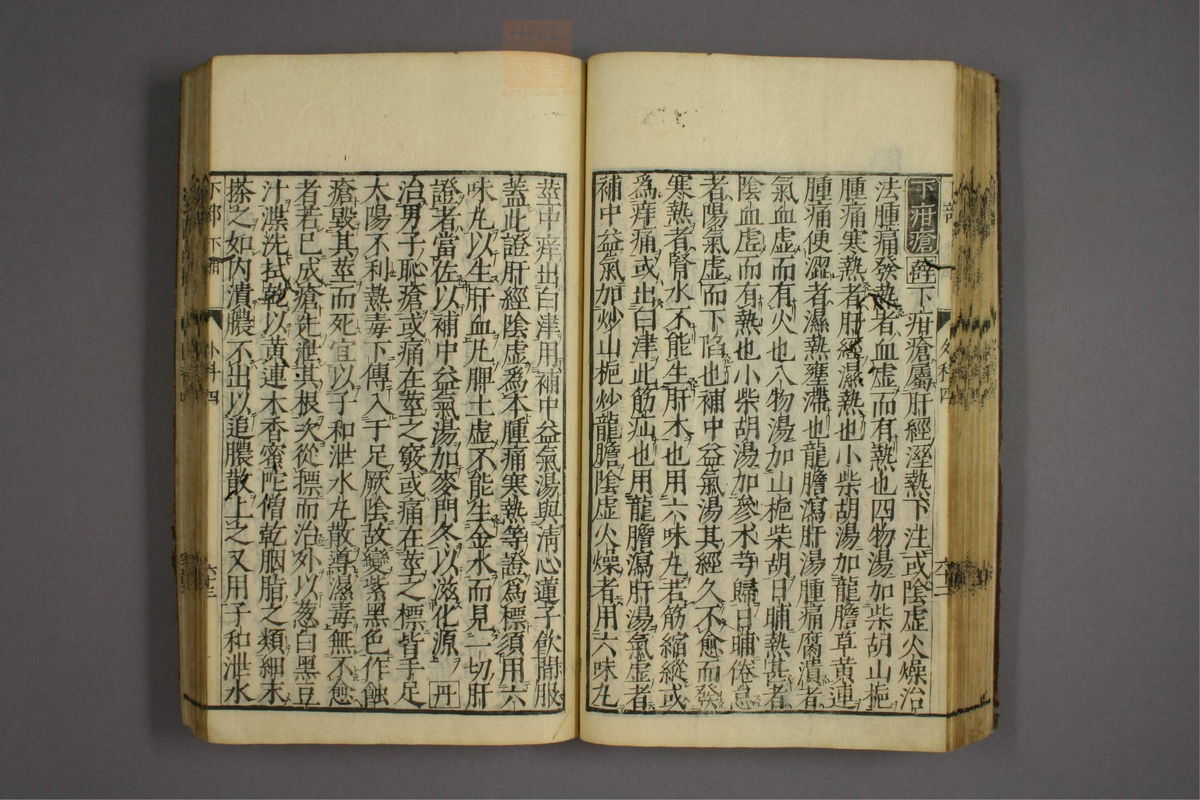 下疳瘡薛下疳瘡屬肝經溼熱下注或陰虛火燥治
法腫痛發熱者血虛而有熱也四物湯加柴胡山梔
腫痛寒熱者肝經濕熱也小柴胡湯加龍膽草黃連
腫痛便澀者濕熱壅滯也龍膽瀉肝湯腫痛腐潰者
氣血虛而有火也八物湯加山梔柴胡日晡熱甚者
陰血虛而有熱也小柴胡湯加參朮芎歸日晡倦怠
者陽氣虛而下陷也補中益氣湯其經久不愈而發
寒熱者腎水不能生肝木也用六味丸若筋縮縱或
爲痒痛或出白津此筋疝也用龍膽瀉肝湯氣虛者
補中益氣加炒山梔炒龍膽陰虛火燥者用六味丸
莖中痒出白津用補中益氣湯與清心蓮子飲間服
蓋此證肝經陰虛爲本腫痛寒熱等證爲標須用六
味丸以生肝血凡脾土虛不能生金水而見一切肝
證者當佐以補中益氣湯加麥門冬以滋化源丹
治男子恥瘡或痛在莖之竅或痛在莖之標皆手足
太陽不利熱毒下傳入于足厥陰故變紫黑色作蝕
瘡毀其莖而死宜以子和泄水丸散導濕毒無不愈
者若已成瘡先泄其根次從標而治外以葱白黑豆
汁渫洗拭乾以黃連木香蜜陀僧乾胭脂之類細末
搽之如內潰膿不出以追膿散上之又用子和泄水
下部 下疳
外科四
六十三